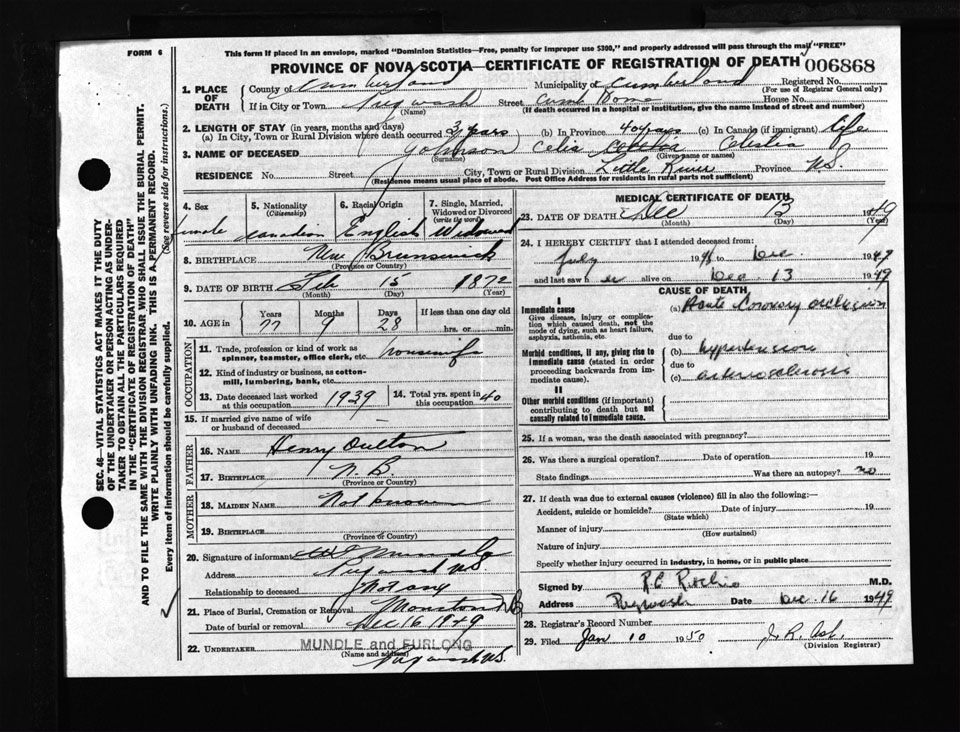 FORM 6
This form if placed in an envelope, marked "Dominion Statistics—Free, penalty for improper use $300," and properly addressed will pass through the mail "FREE"
PROVINCE OF NOVA SCOTIA—CERTIFICATE OF REGISTRATION OF DEATH 006868
1. PLACE OF DEATH
County of Cumberland Municipality of Cumberland Registered No.
(For use of Registrar General only)
If in City or Town Pugwash Street House No.
(Name) (If death occurred in a hospital or institution, give the name instead of street and number)
2. LENGTH OF STAY (in years, months and days)
(a) In City, Town or Rural Division where death occurred 3 years (b) In Province 40 years (c) In Canada (if immigrant) life
3. NAME OF DECEASED Johnson Celia Celestia
(Surname) (Given name or names)
RESIDENCE No. Street City, Town or Rural Division Little River Province N.S.
(Residence means usual place of abode. Post Office Address for residents in rural parts not sufficient)
4. Sex female
5. Nationality (Citizenship) Canadian
6. Racial Origin English
7. Single, Married, Widowed or Divorced (write the word) Widowed
8. BIRTHPLACE New Brunswick
(Province or Country)
9. DATE OF BIRTH Feb 15 1872
(Month) (Day) (Year)
10. AGE in Years Months Days If less than one day old
77 9 28 hrs. or min.
OCCUPATION
11. Trade, profession or kind of work as spinner, teamster, office clerk, etc. housewife
12. Kind of industry or business, as cotton-mill, lumbering, bank, etc.
13. Date deceased last worked at this occupation 1939
14. Total yrs. spent in this occupation 40
15. If married give name of wife or husband of deceased —
FATHER
16. NAME Henry Oulton
17. BIRTHPLACE N.B.
(Province or Country)
MOTHER
18. MAIDEN NAME Not known
19. BIRTHPLACE
(Province or Country)
20. Signature of informant Mundle
Address Pugwash N.S.
Relationship to deceased
21. Place of Burial, Cremation or Removal Moncton N B
Date of burial or removal Dec 16 1949
22. UNDERTAKER MUNDLE and FURLONG
(Name and address)
Pugwash N.S.
MEDICAL CERTIFICATE OF DEATH
23. DATE OF DEATH Dec 13 1949
(Month) (Day)
24. I HEREBY CERTIFY that I attended deceased from:
July 1948 to Dec. 1949
and last saw h er alive on Dec. 13 1949
CAUSE OF DEATH
I
Immediate cause
Give disease, injury or complication which caused death, not the mode of dying, such as heart failure, asphyxia, asthenia, etc.
(a) Acute Coronary occlusion
due to
Morbid conditions, if any, giving rise to immediate cause (stated in order proceeding backwards from immediate cause).
(b) hypertension
due to
(c) arteriosclerosis
II
Other morbid conditions (if important) contributing to death but not causally related to immediate cause.
25. If a woman, was the death associated with pregnancy?
26. Was there a surgical operation? Date of operation 19
State findings Was there an autopsy? no
27. If death was due to external causes (violence) fill in also the following:—
Accident, suicide or homicide? Date of injury 19
(State which)
Manner of injury
(How sustained)
Nature of injury
Specify whether injury occurred in industry, in home, or in public place
Signed by M.D.
Address Pugwash Date Dec. 16 1949
28. Registrar's Record Number
29. Filed Jan 10 1950 J. R.
(Division Registrar)
SEC. 46—VITAL STATISTICS ACT MAKES IT THE DUTY
OF THE UNDERTAKER OR PERSON ACTING AS UNDERTAKER TO OBTAIN ALL THE PARTICULARS REQUIRED
IN THE "CERTIFICATE OF REGISTRATION OF DEATH"
AND TO FILE THE SAME WITH THE DIVISION REGISTRAR WHO SHALL ISSUE THE BURIAL PERMIT.
WRITE PLAINLY WITH UNFADING INK. THIS IS A PERMANENT RECORD.
Every item of information should be carefully supplied. (See reverse side for instructions.)